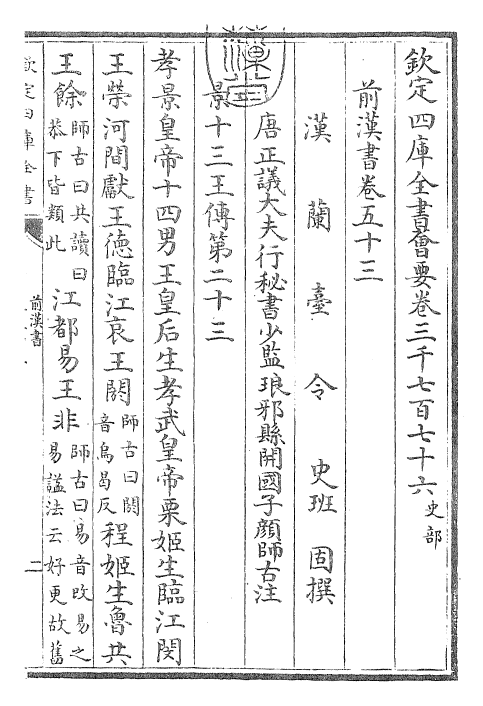 欽定四庫全書薈要卷三千七百七十六 史部
前漢書卷五十三
漢蘭臺令史班固撰
唐正議大夫行秘書少監琅邪縣開國子顔師古注
景十三王傳第二十三
孝景皇帝十四男王皇后生孝武皇帝栗姬生臨江閔
王榮河間獻王德臨江哀王閼師古曰閼音烏曷反程姬生魯共
王餘師古曰共讀曰恭下皆類此江都易王非師古曰易音改易之易謚法云好更故舊
前漢書
二